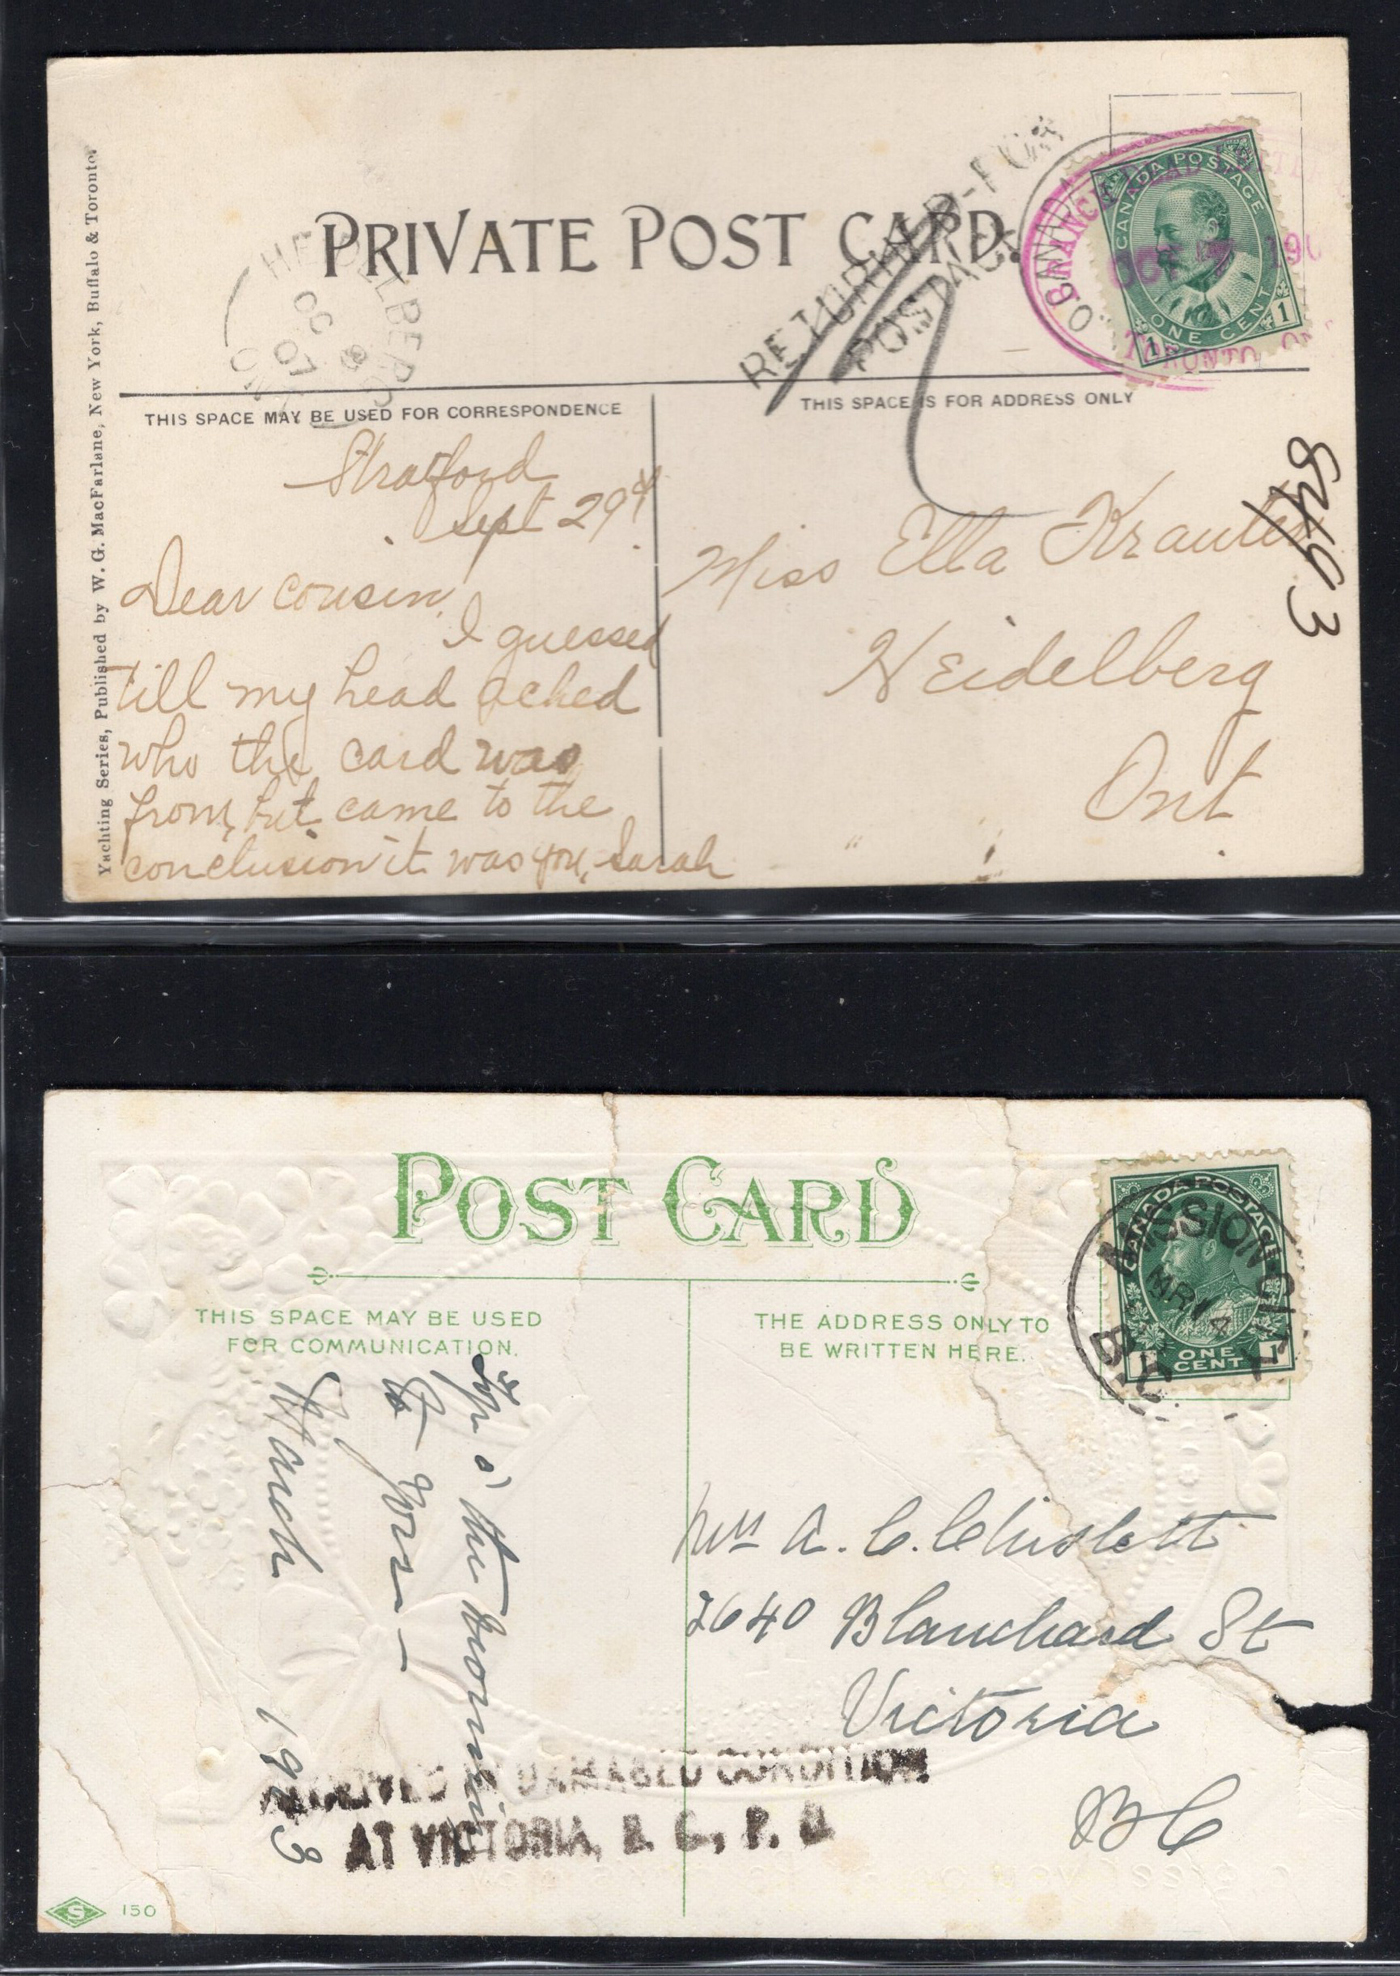 PRIVATE POST CARD.
RETURNED-FOR
POSTAGE
CANADA POSTAGE
ONE CENT
1 1
BRANCH DEAD LETTER
OCT 190
TORONTO, ON
HEIDELBERG
OC 8
07
ONT
Yachting Series, Published by W. G. MacFarlane, New York, Buffalo & Toronto.
THIS SPACE MAY BE USED FOR CORRESPONDENCE
THIS SPACE IS FOR ADDRESS ONLY
Stratford
Sept 29
Dear cousin,
I guessed
till my head ached
who the card was
from, but came to the
conclusion it was you, Sarah
8493
Miss Ella Krauter
Heidelberg
Ont
POST CARD
CANADA POSTAGE
ONE
CENT 1
MISSION CITY
MR 14
B.C.
THIS SPACE MAY BE USED
FOR COMMUNICATION.
THE ADDRESS ONLY TO
BE WRITTEN HERE.
o' the mornin
to you
March 1913
Mrs A. C. Chislett
2640 Blanchard St
Victoria
BC
RECEIVED IN DAMAGED CONDITION
AT VICTORIA, B. C., P. O.
S 150